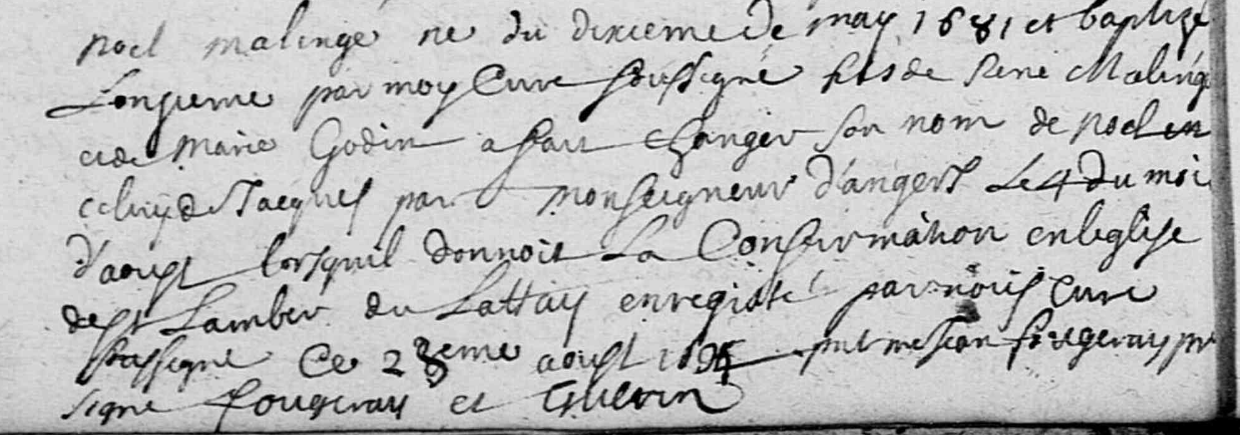 noel malinge ne du dixieme de may 1681 et baptizé
L'onzieme par moy Curé soussigné fils de René Maling
et de Marie Godin a fait changer son nom de noel en
celuy de Jacques par Monseigneur d'angers Le 4 du moi
d'aoust lorsquil donnoit La Confirmation en leglise
de st Lamber du Lattay enregistré par nous Curé
soussigné Ce 28eme aoust fougeray pr
signé fougeray et Guerin